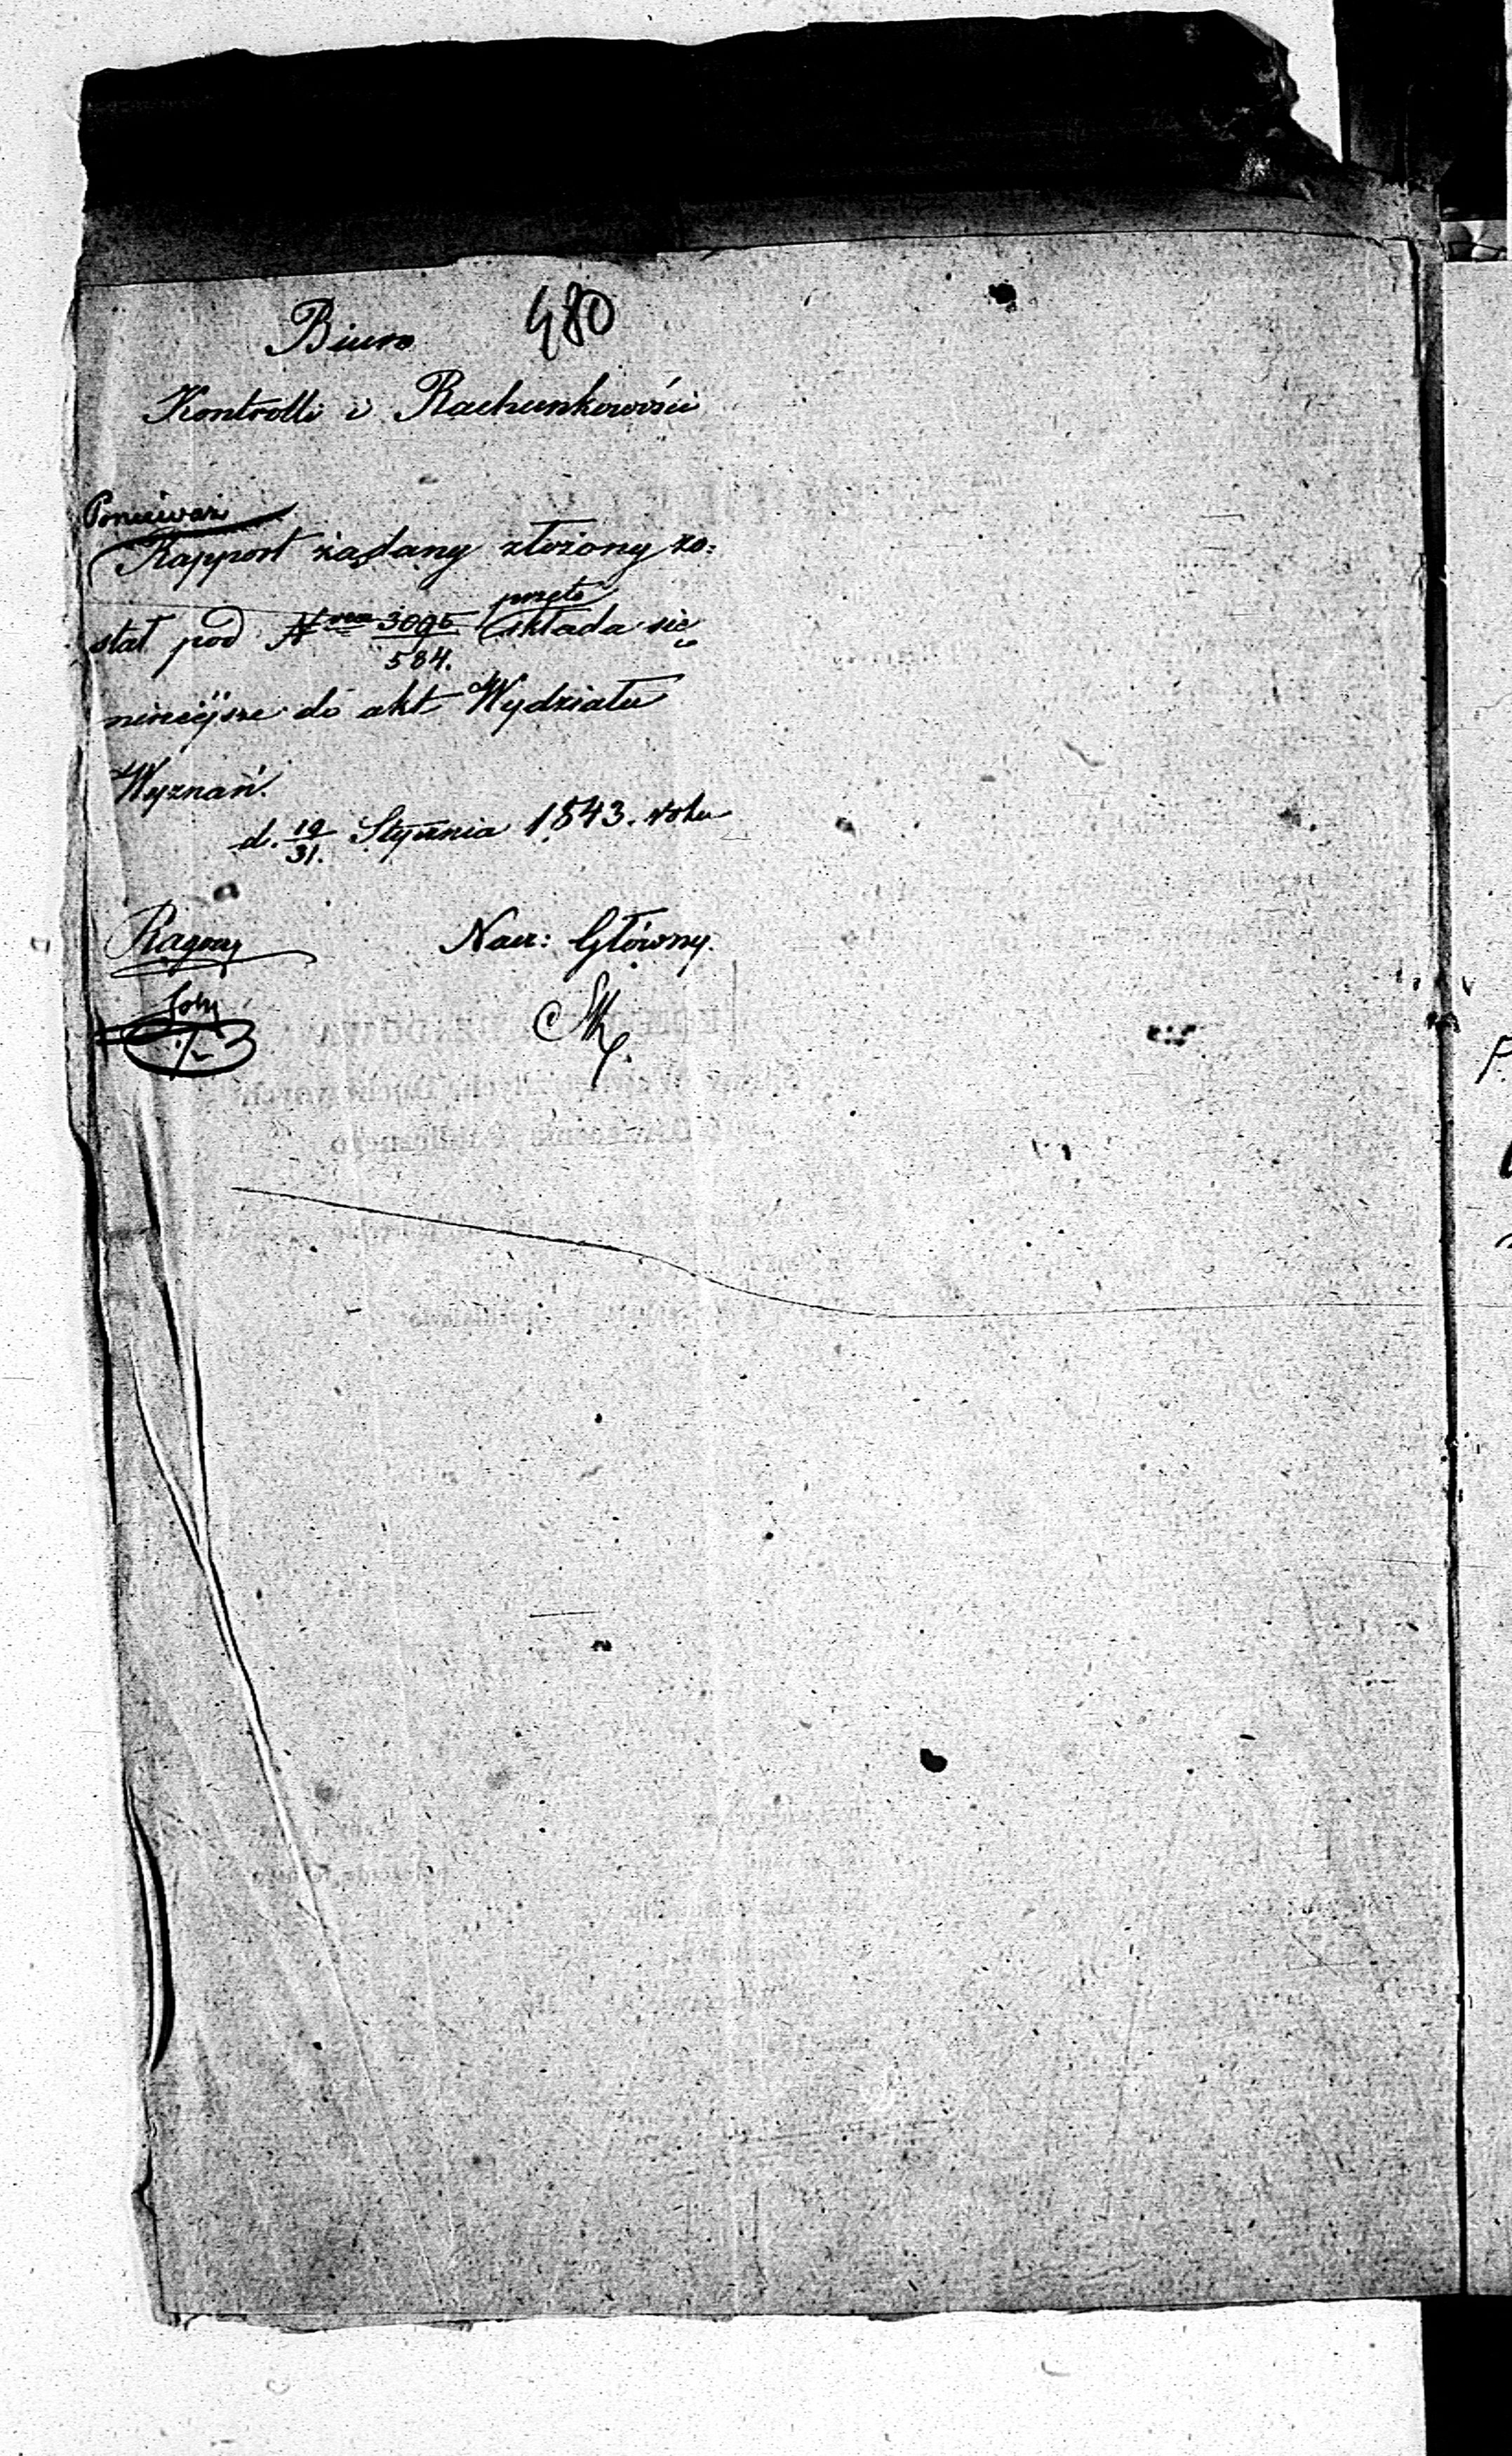 480
Biuro
Kontrolli i Rachunkowości
Ponieważ
Rapport żądany złożony zo:
stał pod Nrem 3095/584. przeto składa się
nineiejsze do akt Wydziału
Wyznań.
d. 19/31. Stycznia 1843. roku
Nacz: Główny.